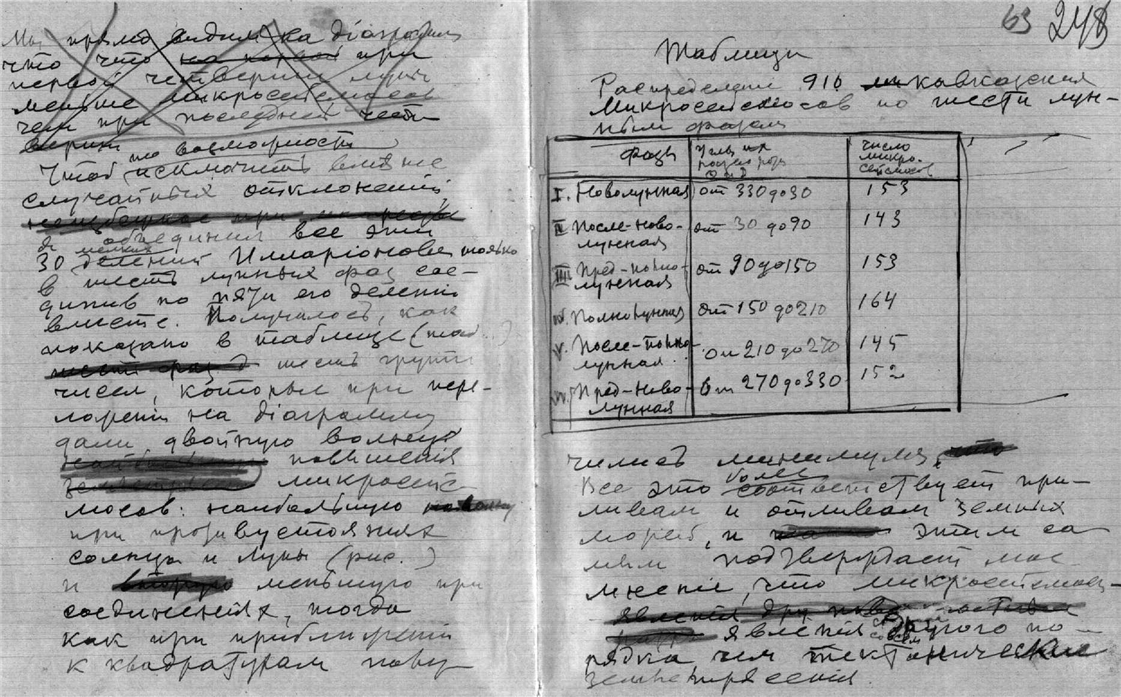 Мы прямо видим на діаграмѣ
что что на первой при
первой четверти луны
меньше микросейсмосов
чем при последней чет-
верти
по возможности
Чтоб исключить вліяние
случайных отклонений
я объединил все эти
мелкия
30 делений Илларіонова только
в шесть лунных фаз сое-
динив по пяти его делений
вместе. Получилось, как
показано в таблице (таб..)
шесть групп
чисел, которыя при пере-
ложении на діаграмму
дали двойную волну
повышения
микросейс-
мосов: наибольшую
при противустояниях
солнца и луны (рис. )
и меньшую при
соединениях, тогда
как при приближении
к квадратурам полу-
63 248
Таблица
Распределение 916 кавказских
микросейсмосов по шести лун-
ным фазам
Фазы
число микро-сейсмосов
I. Новолунная от 330 до 30 153
II После-ново-лунная от 30 до 90 143
III Пред-полно-лунная от 90 до 150 153
IV. Полнолунная от 150 до 210 164
V. После-полно-лунная от 210 до 270 145
VI. Пред-ново-лунная от 270 до 330 152
чились минимумы,
более
Все это соответствует при-
ливам и отливам земных
морей, и этим са-
мым подтверждает мое
мнение, что микросейсмы-
явления совсем другого по-
рядка, чем тектонические
землетрясения.